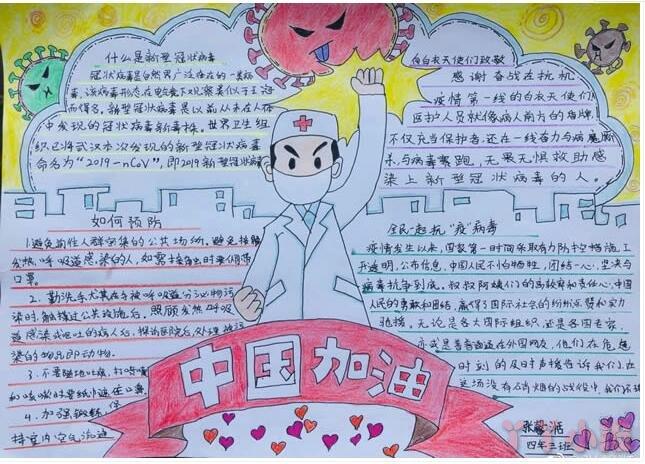 什么是新型冠状病毒
冠状病毒是自然界广泛存在的一类病
毒,该病毒形态在
而得名。新型冠状病毒是以前从未在人体
中发现的冠状病毒新毒株。世界卫生组
织已将武汉本次发现的新型冠状病毒
命名为“2019-nCoV”,即2019新型冠状病毒
向白衣天使们致敬
感谢奋战在抗机
疫情第一线的白衣天使们
医护人员就像病人前方的盾牌
不仅充当保护者,还在一线奋力与病魔厮
杀,与病毒赛跑,无畏无惧救助感
染上新型冠状病毒的人。
如何预防
1.避免前往人群密集的公共场所。避免接触
发热呼吸道感染的人,如需接触时要佩戴
口罩。
2.勤洗手尤其在手被呼吸道分泌物污
染时、触摸过公共设施后、照顾发热呼吸
道感染或呕吐的病人后、
染的物品即动物
3.不要随地吐痰,打喷嚏
和咳嗽时要纸巾遮住口鼻
4.加强锻炼,保
持室内空气流通
全民一起抗“疫”病毒
疫情发生以来,国家第一时间采取有力防控措施,工
开透明,公布信息,中国人民不怕牺牲,团结一心,坚决与
病毒抗争到底。叔叔阿姨们的高较育和责任心,中国
人民的勇敢和团结,赢得了国际社会的纷纷点赞和实力
驰援。无论是各大国际组织,还是各国专家
亦或是普普通通在外国网友,他们在危难
时刻的及时声援告诉我们,在
这场没有硝烟的战役中,我们不孤
中国加油
四年三班